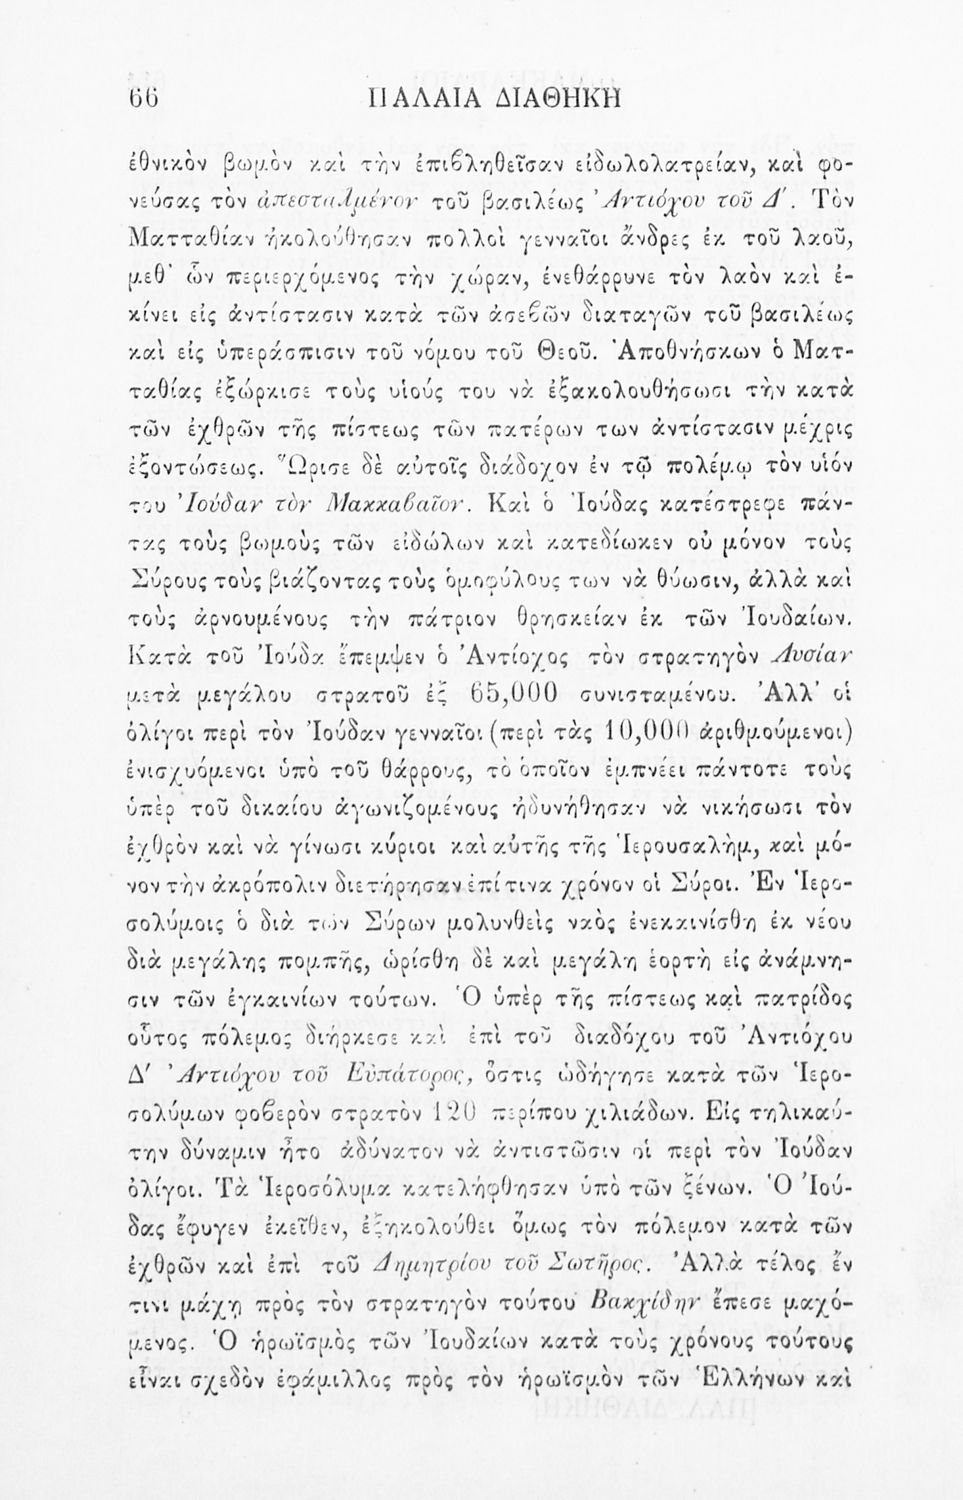 66 ΠΑΛΑΙΑ ΔΙΑΘΗΚΗ
ἐθνικὸν βωμὸν καὶ τὴν ἐπιβληθεῖσαν εἰδωλολατρείαν, καὶ φο-
νεύσας τὸν ἀπεσταλμένον τοῦ βασιλέως Ἀντιόχου τοῦ Δ΄. Τὸν
Ματταθίαν ἠκολούθησαν πολλοὶ γενναῖοι ἄνδρες ἐκ τοῦ λαοῦ,
μεθ' ὧν περιερχόμενος τὴν χώραν, ἐνεθάρρυνε τὸν λαὸν καὶ ἐ-
κίνει εἰς ἀντίστασιν κατὰ τῶν ἀσεβῶν διαταγῶν τοῦ βασιλέως
καὶ εἰς ὑπεράσπισιν τοῦ νόμου τοῦ Θεοῦ. Ἀποθνήσκων ὁ Ματ-
ταθίας ἐξώρκισε τοὺς υἱούς του νὰ ἐξακολουθήσωσι τὴν κατὰ
τῶν ἐχθρῶν τῆς πίστεως τῶν πατέρων των ἀντίστασιν μέχρις
ἐξοντώσεως. Ὥρισε δὲ αὐτοῖς διάδοχον ἐν τῷ πολέμῳ τὸν υἱόν
του Ἰούδαν τὸν Μακκαβαῖον. Καὶ ὁ Ἰούδας κατέστρεφε πάν-
τας τοὺς βωμοὺς τῶν εἰδώλων καὶ κατεδίωκεν οὐ μόνον τοὺς
Σύρους τοὺς βιάζοντας τοὺς ὁμοφύλους των νὰ θύωσιν, ἀλλὰ καὶ
τοὺς ἀρνουμένους τὴν πάτριον θρησκείαν ἐκ τῶν Ἰουδαίων.
Κατὰ τοῦ Ἰούδα ἔπεμψεν ὁ Ἀντίοχος τὸν στρατηγὸν Λυσίαν
μετὰ μεγάλου στρατοῦ ἐξ 65,000 συνισταμένου. Ἀλλ' οἱ
ὀλίγοι περὶ τὸν Ἰούδαν γενναῖοι (περὶ τὰς 10,000 ἀριθμούμενοι)
ἐνισχυόμενοι ὑπὸ τοῦ θάρρους, τὸ ὁποῖον ἐμπνέει πάντοτε τοὺς
ὑπὲρ τοῦ δικαίου ἀγωνιζομένους ἠδυνήθησαν νὰ νικήσωσι τὸν
ἐχθρὸν καὶ νὰ γίνωσι κύριοι καὶ αὐτῆς τῆς Ἱερουσαλὴμ, καὶ μό-
νον τὴν ἀκρόπολιν διετήρησαν ἐπί τινα χρόνον οἱ Σύροι. Ἐν Ἱερο-
σολύμοις ὁ διὰ τῶν Σύρων μολυνθεὶς ναὸς ἐνεκαινίσθη ἐκ νέου
διὰ μεγάλης πομπῆς, ὡρίσθη δὲ καὶ μεγάλη ἑορτὴ εἰς ἀνάμνη-
σιν τῶν ἐγκαινίων τούτων. Ὁ ὑπὲρ τῆς πίστεως καὶ πατρίδος
οὗτος πόλεμος διήρκεσε καὶ ἐπὶ τοῦ διαδόχου τοῦ Ἀντιόχου
Δ΄ Ἀντιόχου τοῦ Εὐπάτορος, ὅστις ὡδήγησε κατὰ τῶν Ἱερο-
σολύμων φοβερὸν στρατὸν 120 περίπου χιλιάδων. Εἰς τηλικαύ-
την δύναμιν ἦτο ἀδύνατον νὰ ἀντιστῶσιν οἱ περὶ τὸν Ἰούδαν
ὀλίγοι. Τὰ Ἱεροσόλυμα κατελήφθησαν ὑπὸ τῶν ξένων. Ὁ Ἰού-
δας ἔφυγεν ἐκεῖθεν, ἐξηκολούθει ὅμως τὸν πόλεμον κατὰ τῶν
ἐχθρῶν καὶ ἐπὶ τοῦ Δημητρίου τοῦ Σωτῆρος. Ἀλλὰ τέλος ἔν
τινι μάχῃ πρὸς τὸν στρατηγὸν τούτου Βακχίδην ἔπεσε μαχό-
μενος. Ὁ ἡρωϊσμὸς τῶν Ἰουδαίων κατὰ τοὺς χρόνους τούτους
εἶναι σχεδὸν ἐφάμιλλος πρὸς τὸν ἡρωϊσμὸν τῶν Ἑλλήνων καὶ